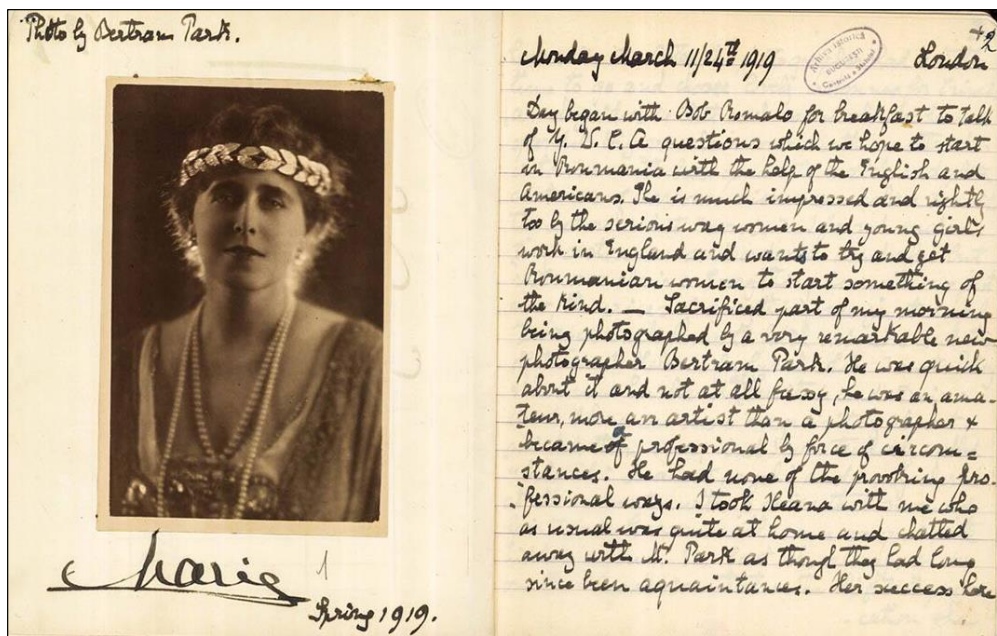 Photo by Bertram Park.
Marie
Spring 1919.
2
Monday March 11/24th 1919
London
Arhiva Istorică
Centrală a Statului
Day began with Bob Romalo for breakfast to talk
of Y. W. C. A questions which we hope to start
in Roumania with the help of the English and
Americans. She is much impressed and rightly
too by the serious way women and young girls
work in England and wants to try and get
Roumanian women to start something of
the kind. — Sacrificed part of my morning
being photographed by a very remarkable new
photographer Bertram Park. He was quick
about it and not at all fussy, he was an ama-
teur, more an artist than a photographer +
became a professional by force of circom=
stances. He had none of the provoking pro
fessional ways. I took Ileana with me who
as usual was quite at home and chatted
away with Mr. Park as though they had long
since been aquaintances. Her success here